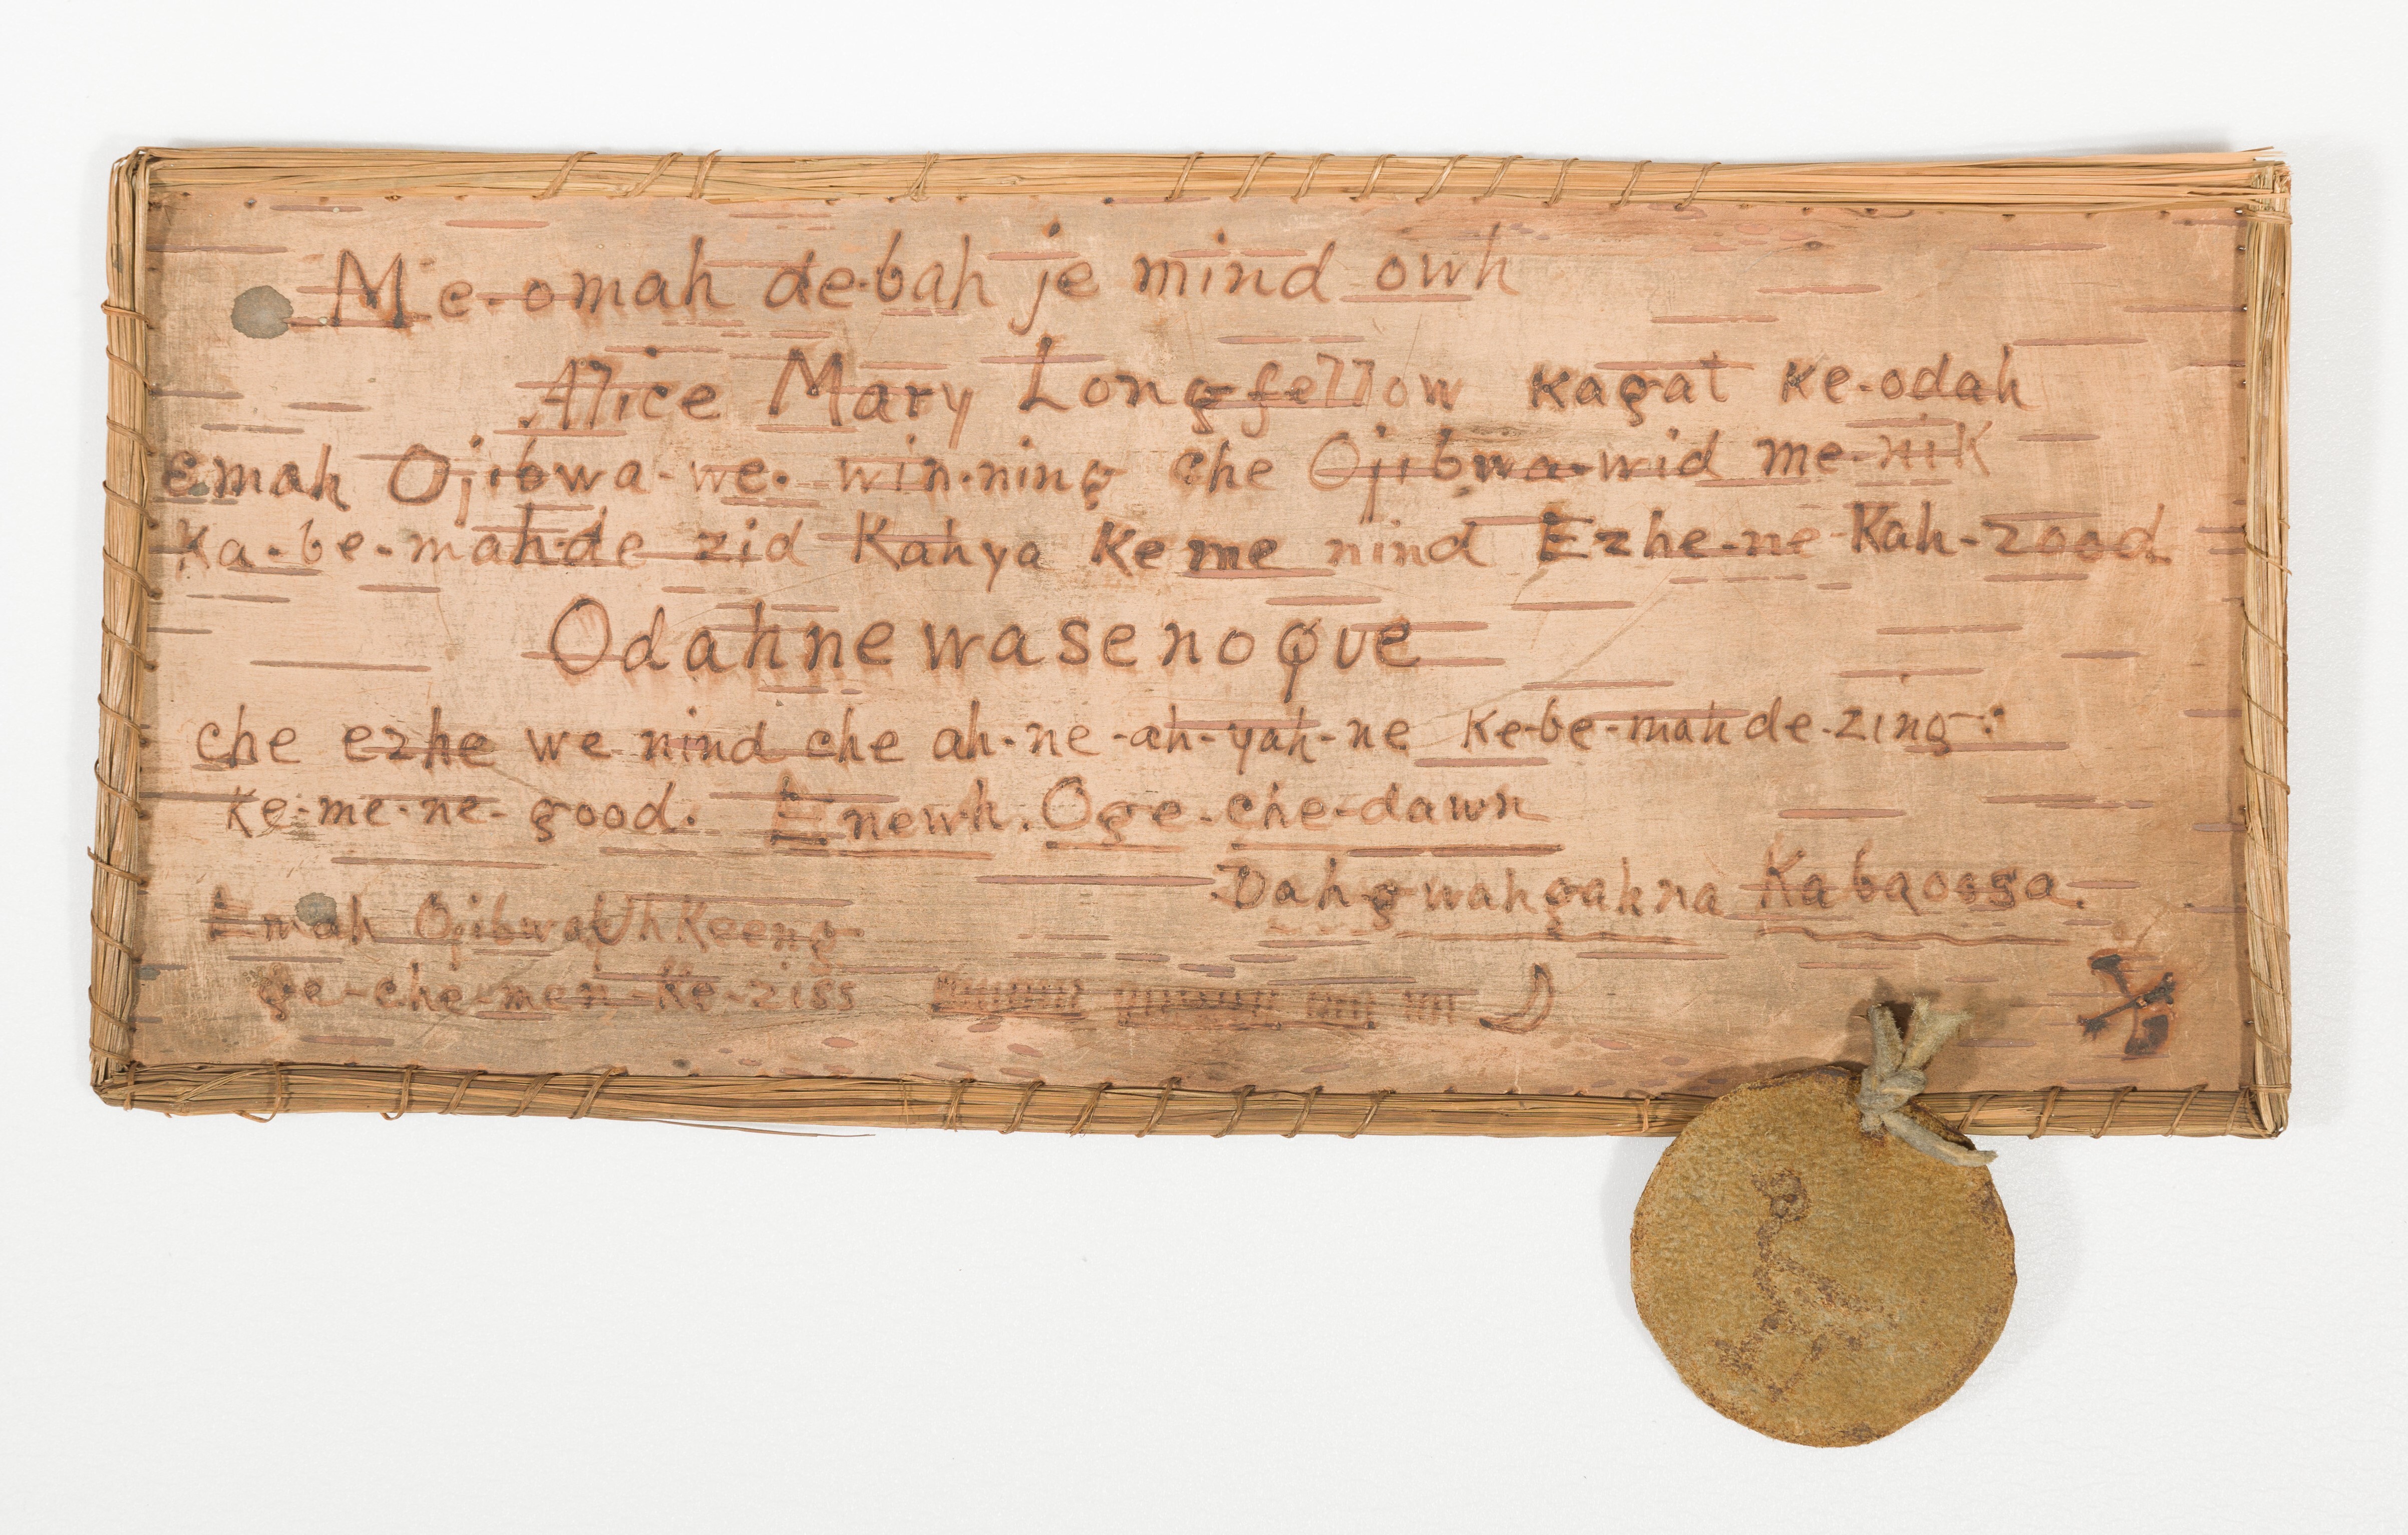 Me-omah de-bah je mind owh
Alice Mary Longfellow kagat ke-odah
emah Ojibwa-we-win-ning che Ojibwa-wid me-nik
Ka-be-mahde zid Kahya Ke me nind Ezhe-ne-Kah-zood.
Odahnewasenoque
che ezhe we nind che ah-ne-ah-yah-ne Ke-be-mahde-zing:
Ke-me-ne-good. Enewh. Oge-che-dawn
Dahgwahgahna Kabaoosa.
Emah OjibwaUhKeeng
ge-che-men-Ke-ziss